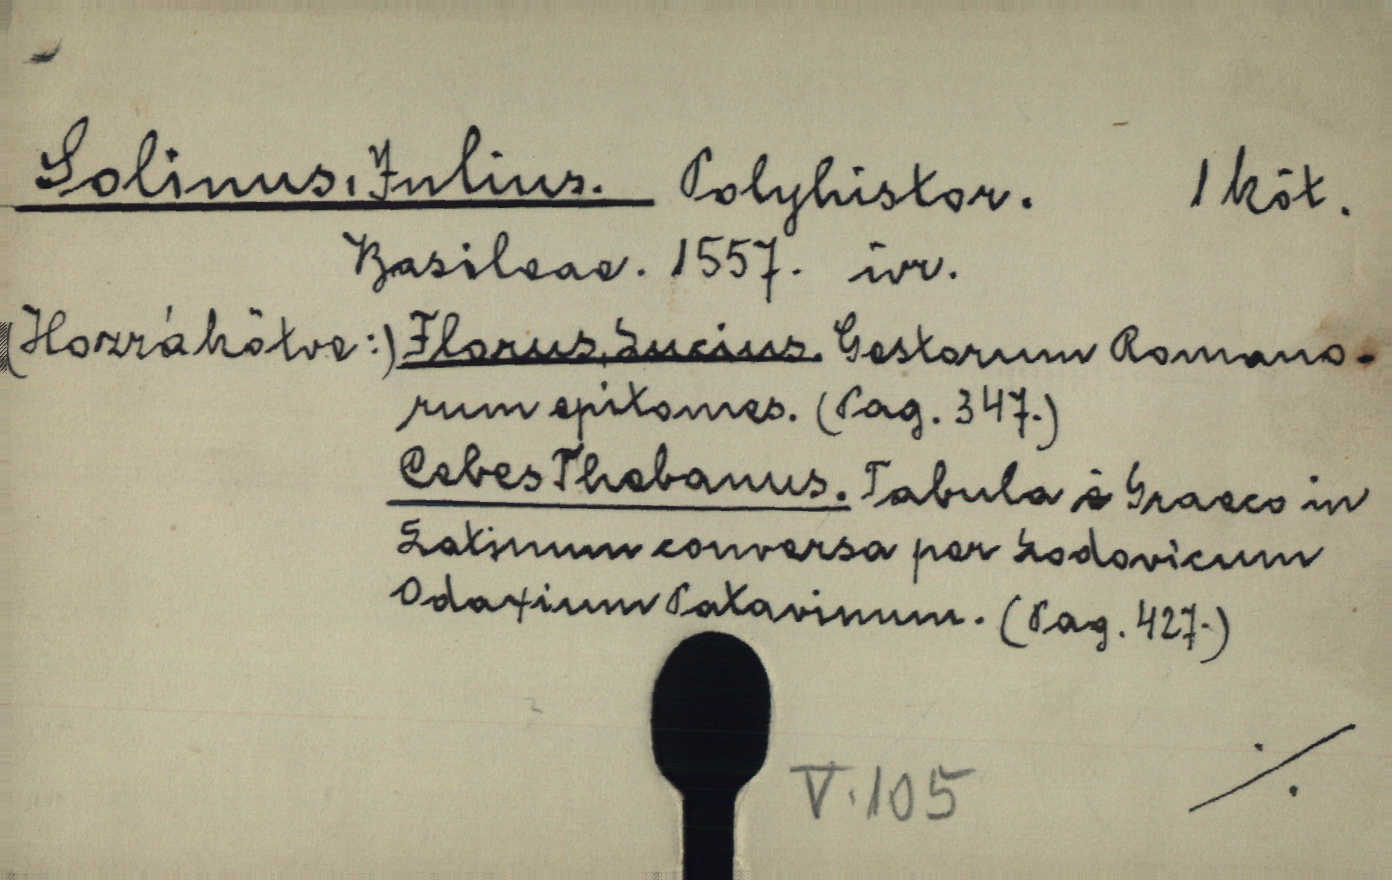 Solinus, Julius. Polyhistor. 1 köt.
Basileae. 1557. ivr.
(Hozzákötve:) Florus, Lucius. Gestorum Romano-
rum epitomes. (Pag. 347.)
Cebes Thebanus. Tabula è Graeco in
Latinum conversa per Lodovicum
Odaxium Patavinum. (Pag. 427.)
V. 105
./.